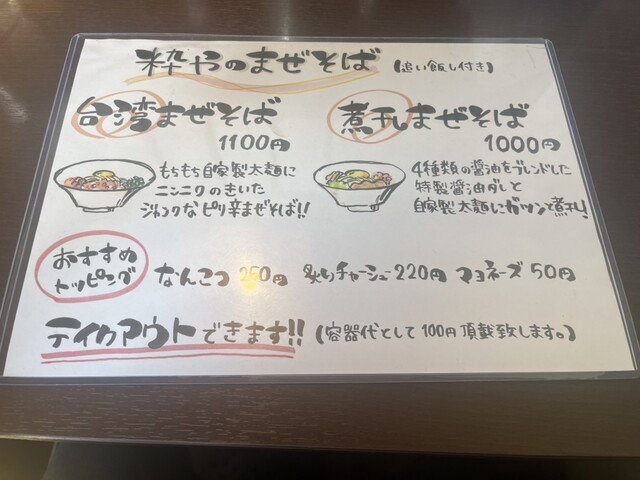 粋やのまぜそば (追い飯し付き)
台湾まぜそば
1100円
もちもち自家製太麺に
ニンニクのきいた
ジャンクなピリ辛まぜそば!!
煮干しまぜそば
1000円
4種類の醤油をブレンドした
特製醤油ダレと
自家製太麺にガツンと煮干し!
おすすめ
トッピング
なんこつ 250円 炙りチャーシュー220円 マヨネーズ 50円
テイクアウトできます!! (容器代として100円頂戴致します。)